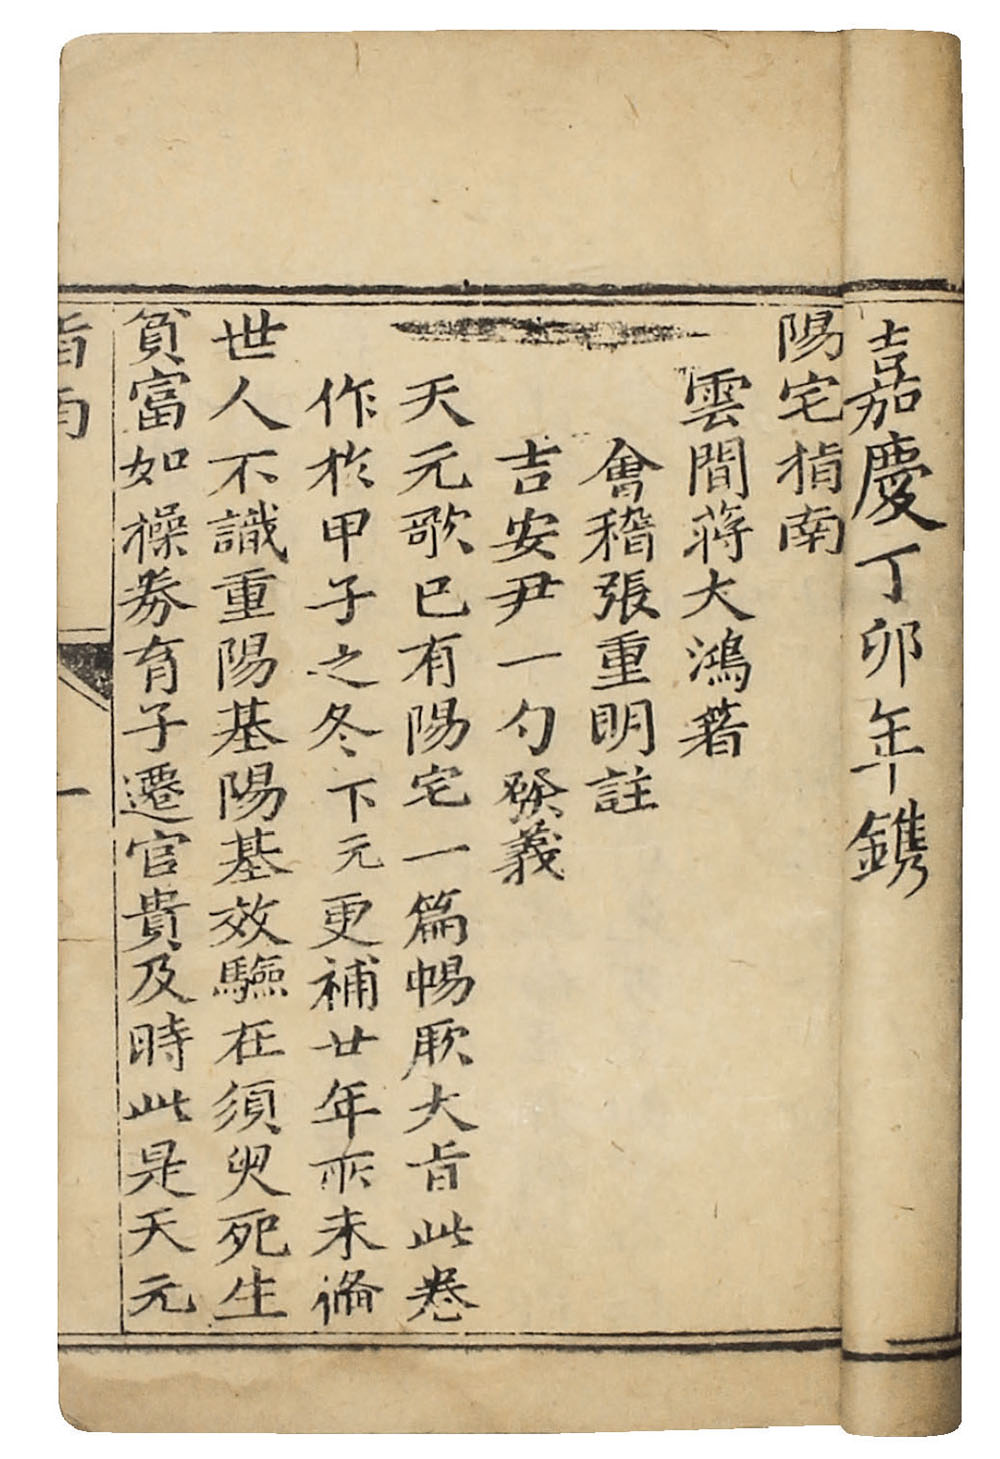 嘉慶丁卯年鐫
陽宅指南
雲間蔣大鴻著
會稽張重明註
吉安尹一勺發義
天元歌已有陽宅一篇暢厥大旨此卷
作於甲子之冬下元更補廿年所未備
世人不識重陽基陽基效驗在須臾死生
貧富如操券育子遷官貴及時此是天元
指南
一